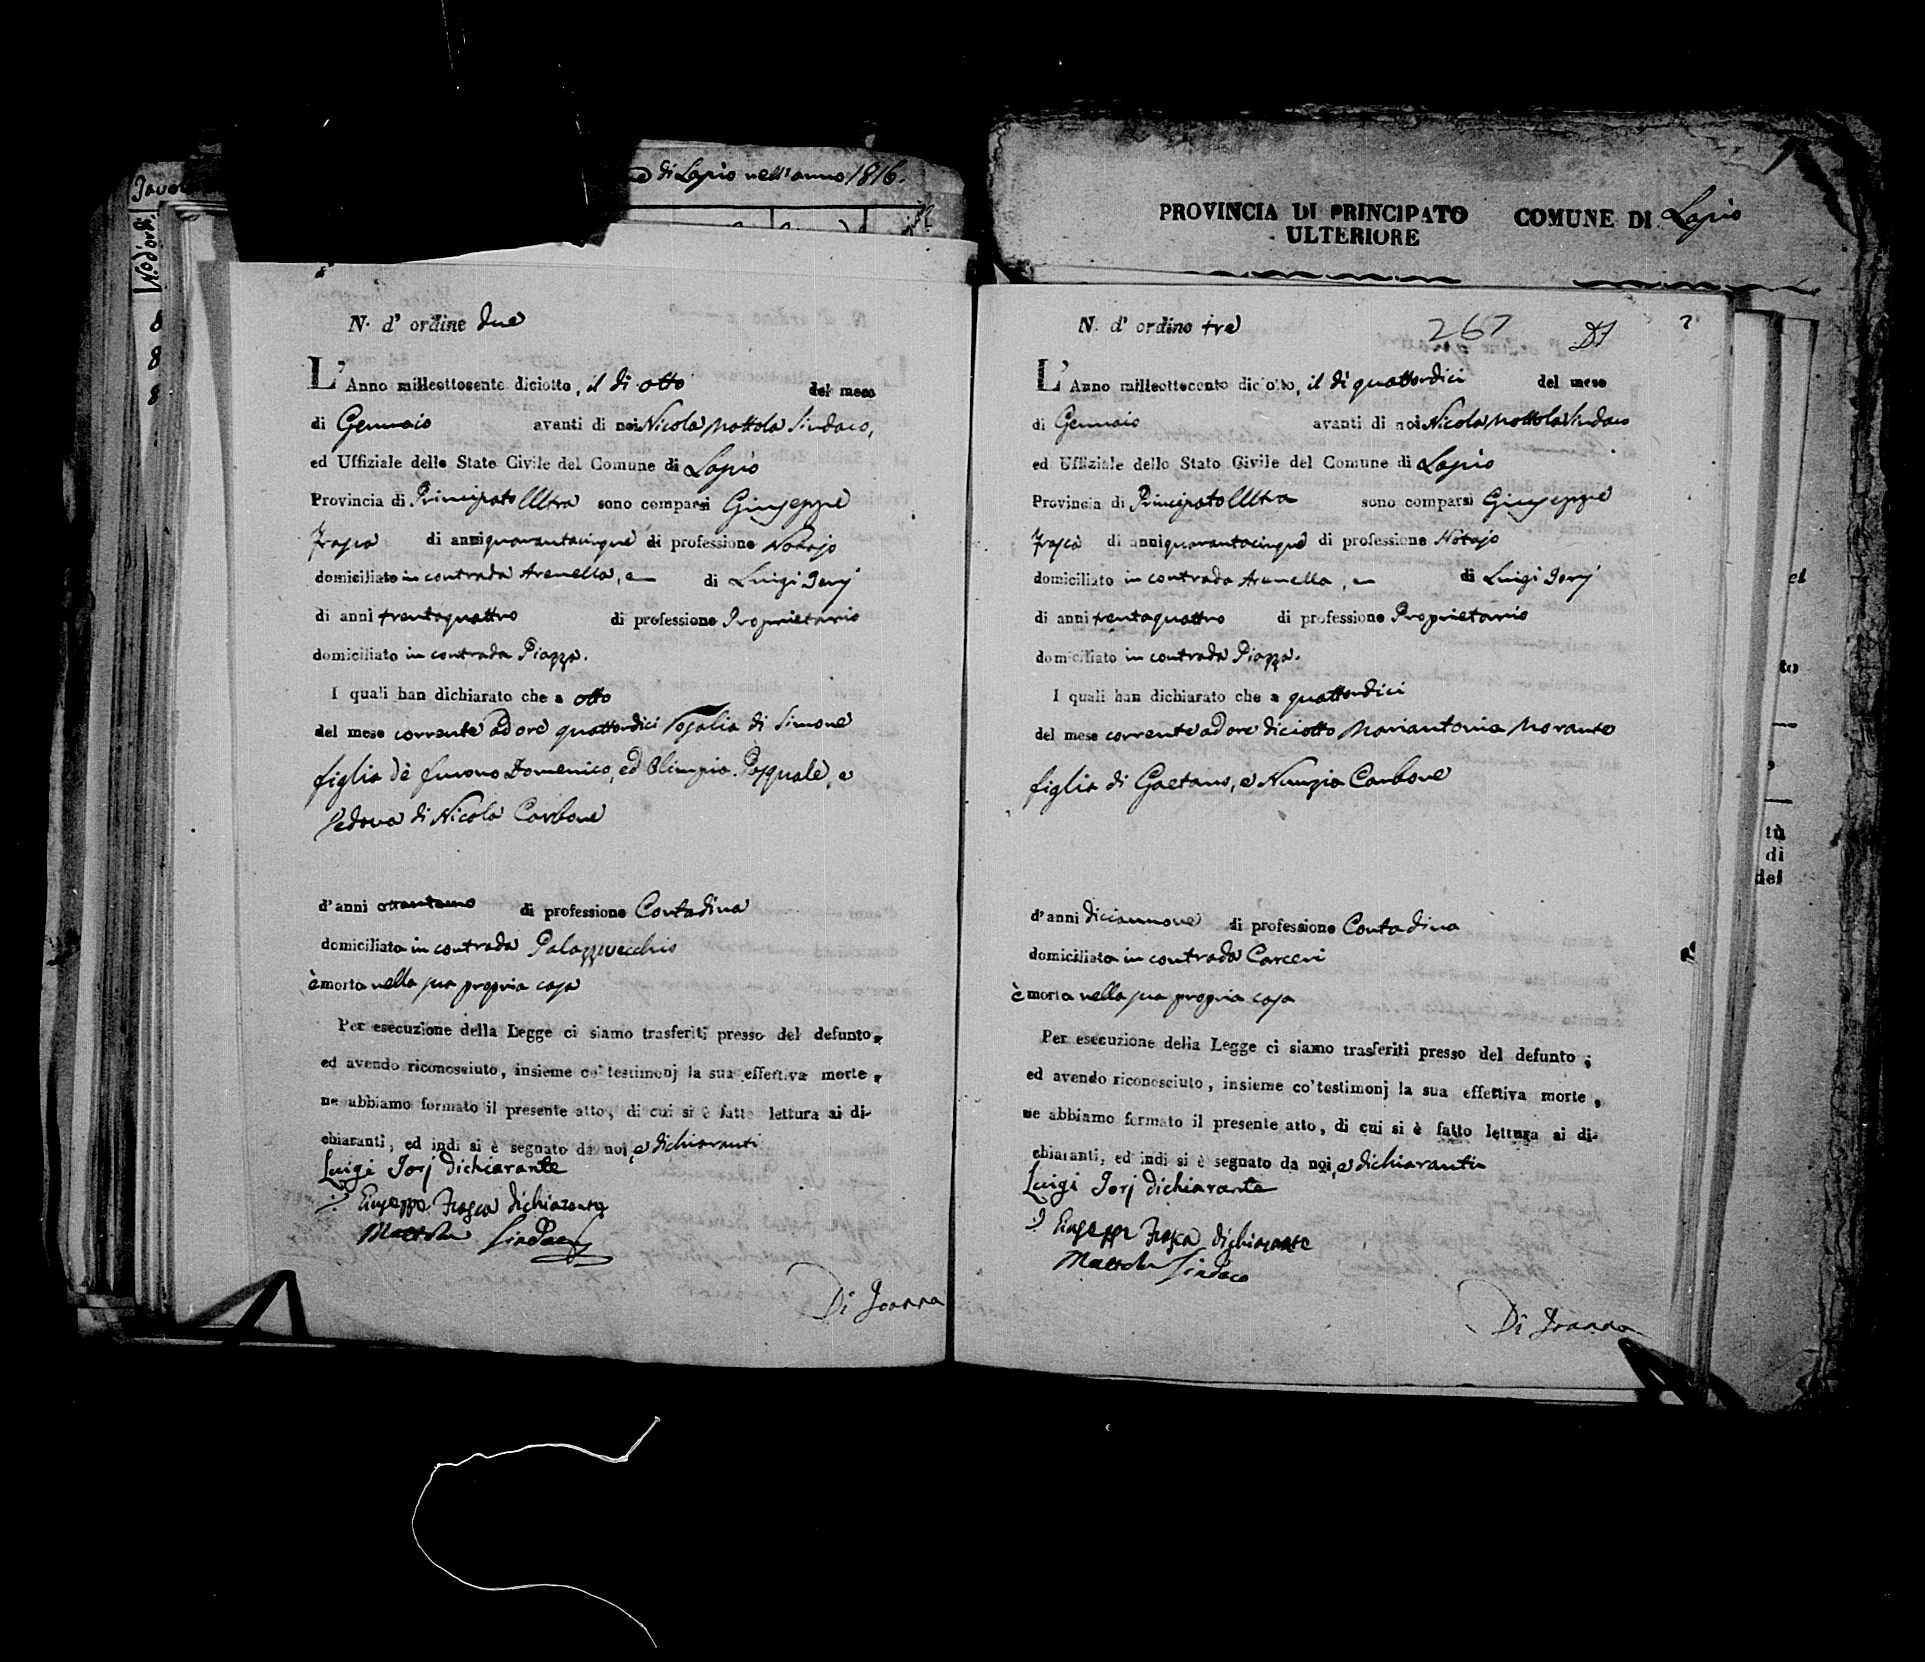 di Lapio nell'anno 1816.
N.o d'ordi.
8
8
8
N. d' ordine due
L'Anno milleottocento diciotto, il dì otto del mese
di Gennaio avanti di noi Nicola Mottola Sindaco,
ed Uffiziale dello Stato Civile del Comune di Lapio
Provincia di Principato Ultra sono comparsi Giuseppe
Frasca di anni quarantacinque di professione Notajo
domiciliato in contrada Arenella, e di Luigi Jorj
di anni trentaquattro di professione Proprietario
domiciliato in contrada Piazza.
I quali han dichiarato che a otto
del mese corrente ad ore quattordici Rosalia di Simone
figlia dè furono Domenico, ed Olimpia Pasquale, e
Vedova di Nicola Carbone
d'anni di professione Contadina
domiciliata in contrada Palazzovecchio
è morta nella sua propria casa
Per esecuzione della Legge ci siamo trasferiti presso del defunto,
ed avendo riconosciuto, insieme co' testimonj la sua effettiva morte,
ne abbiamo formato il presente atto, di cui si è fatto lettura ai di-
chiaranti, ed indi si è segnato da noi, e dichiaranti
Luigi Jorj dichiarante
Giuseppe Frasca dichiarante
Mottola Sindaco
Di Joanna
PROVINCIA DI PRINCIPATO COMUNE DI Lapio
ULTERIORE
N. d' ordine tre 267
L'Anno milleottocento diciotto, il dì quattordici del mese
di Gennaio avanti di noi Nicola Mottola Sindaco
ed Uffiziale dello Stato Civile del Comune di Lapio
Provincia di Principato Ultra sono comparsi Giuseppe
Frasca di anni quarantacinque di professione Notajo
domiciliato in contrada Arenella, e di Luigi Jorj
di anni trentaquattro di professione Proprietario
domiciliato in contrada Piazza.
I quali han dichiarato che a quattordici
del mese corrente ad ore diciotto Mariantonia Morante
figlia di Gaetano, e Nunzia Carbone
d'anni diciannove di professione Contadina
domiciliata in contrada Carceri
è morta nella sua propria casa
Per esecuzione della Legge ci siamo trasferiti presso del defunto;
ed avendo riconosciuto, insieme co' testimonj la sua effettiva morte,
ne abbiamo formato il presente atto, di cui si è fatto lettura ai di-
chiaranti, ed indi si è segnato da noi, e dichiaranti
Luigi Jorj dichiarante
Giuseppe Frasca dichiarante
Mottola Sindaco
Di Joanna
el
to
tù
di
del